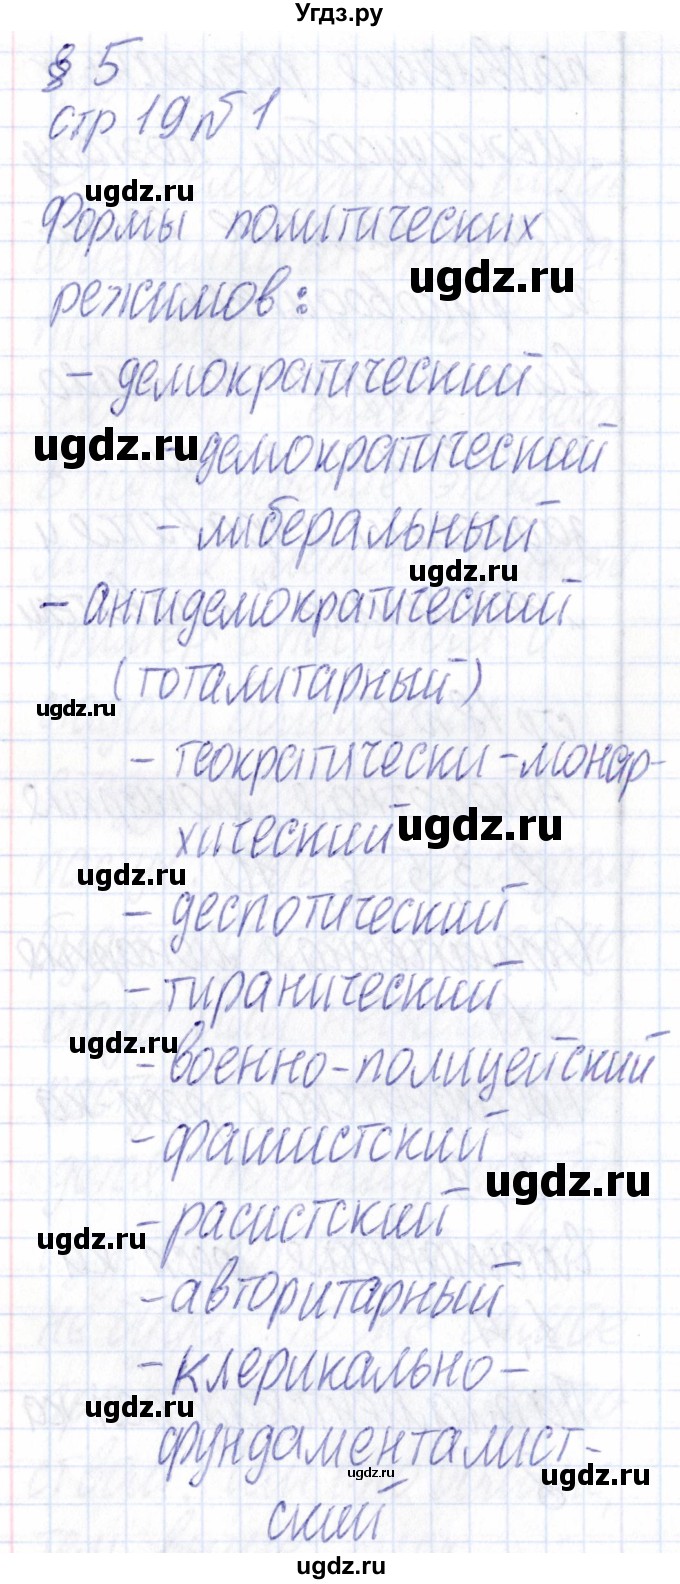 Угдз.ру
§ 5
стр 19 №1
ugdz.ru
Формы политических
ugdz.ru
режимов:
- демократический
ugdz.ru
- демократический
- либеральный
ugdz.ru
- антидемократический
(тоталитарный)
ugdz.ru
- теократически-монар-
хический
ugdz.ru
ugdz.ru
- деспотический
- тиранический
ugdz.ru
- военно-полицейский
- фашистский
ugdz.ru
- расистский
ugdz.ru
- авторитарный
- клерикально-
ugdz.ru
фундаменталист-
ugdz.ru
ugdz.ru
ский
ugdz.ru